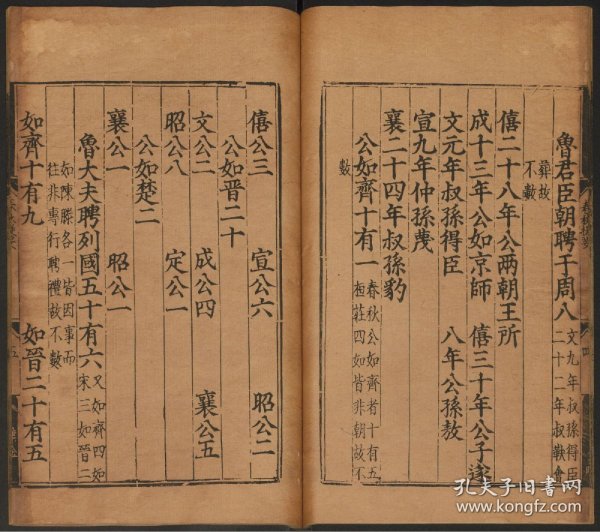 魯君臣朝聘于周八 文九年叔孫得臣 二十二年叔鞅會
葬故 不數
僖二十八年公兩朝王所
成十三年公如京師 僖三十年公子遂
文元年叔孫得臣 八年公孫敖
宣九年仲孫蔑
襄二十四年叔孫豹
公如齊十有一 春秋公如齊者十有五 桓莊四如皆非朝故不
數
僖公三 宣公六 昭公二
公如晉二十
文公二 成公四 襄公五
昭公八 定公一
公如楚二
襄公一 昭公一
魯大夫聘列國五十有六 又如齊四如 宋三如晉二
如陳滕各一皆因事而 往非專行聘禮故不數
如齊十有九 如晉二十有五
孔夫子旧书网
www.kongfz.com